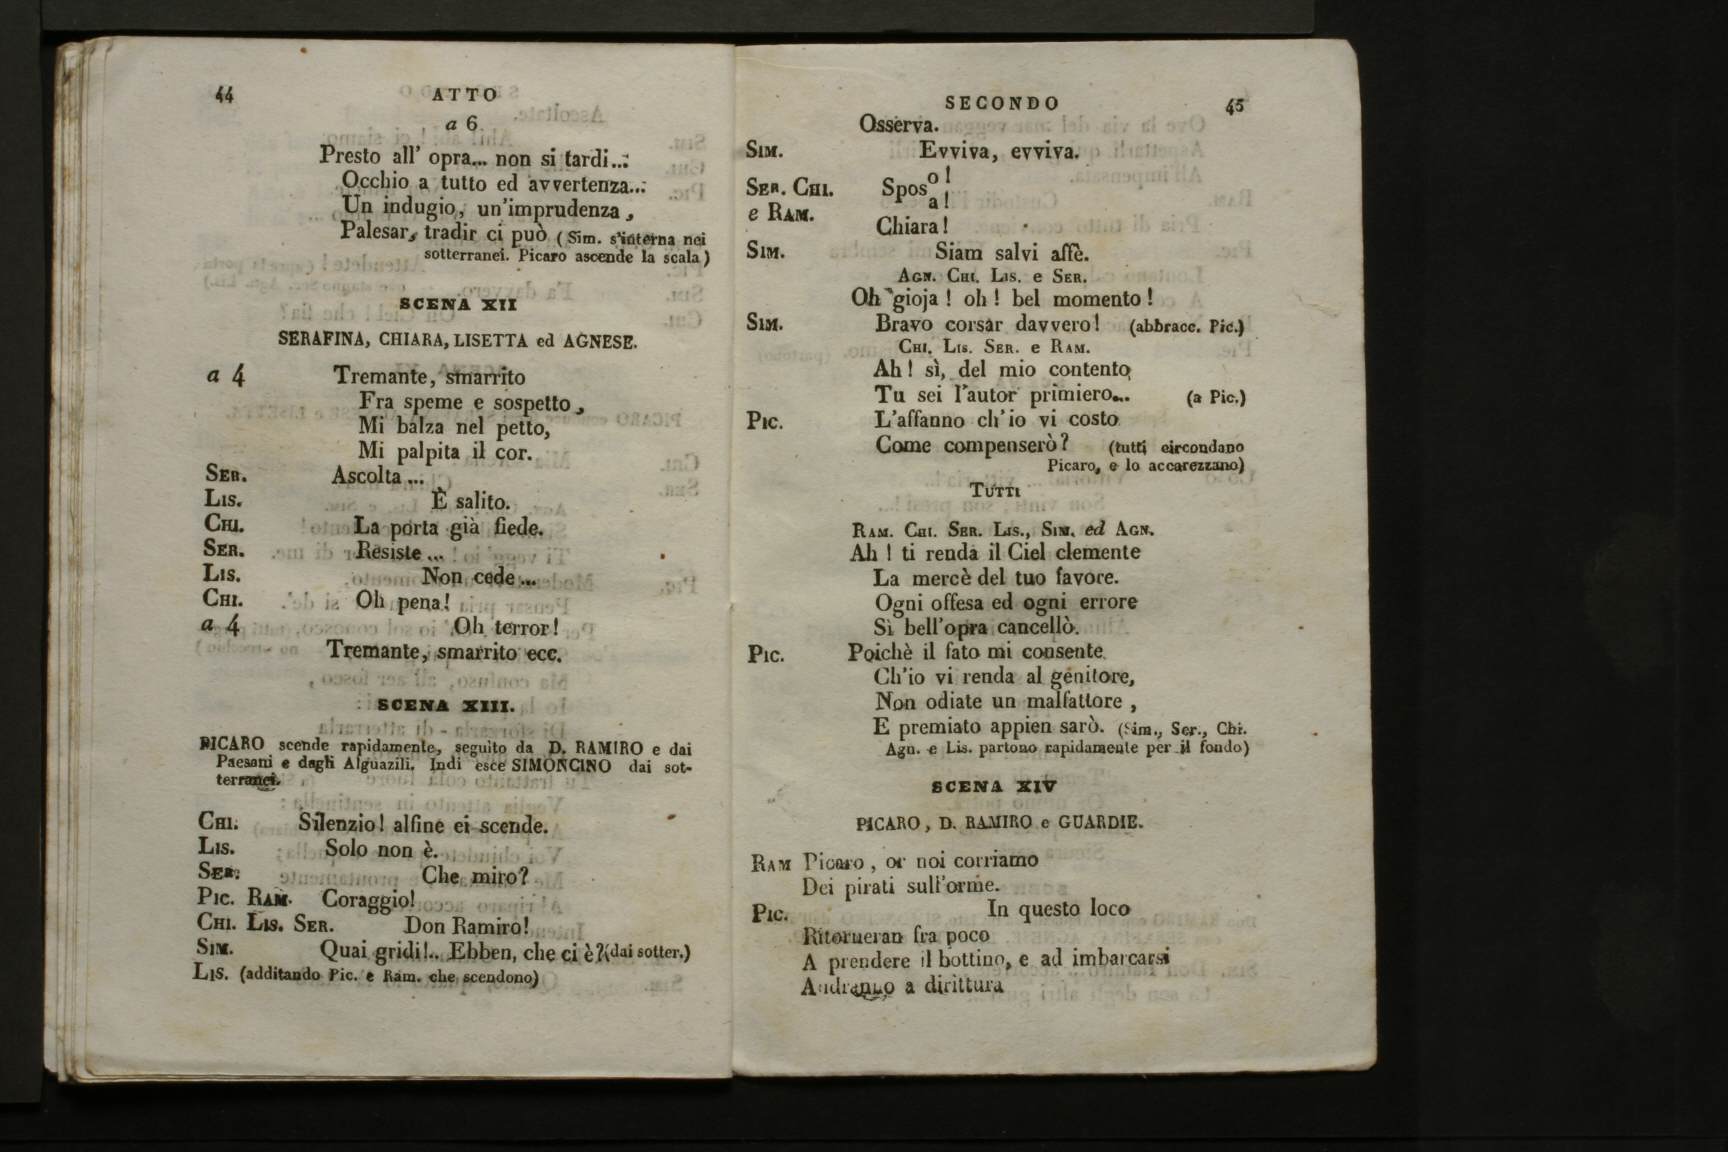 44
ATTO
a 6
Presto all' opra... non si tardi...
Occhio a tutto ed avvertenza...
Un indugio, un'imprudenza,
Palesar, tradir ci può (Sim. s'interna nei
sotterranei. Picaro ascende la scala)
SCENA XII
SERAFINA, CHIARA, LISETTA ed AGNESE.
a 4 Tremante, smarrito
Fra speme e sospetto,
Mi balza nel petto,
Mi palpita il cor.
SER. Ascolta...
LIS. È salito.
CHI. La porta già fiede.
SER. Resiste...
LIS. Non cede...
CHI. Oh pena!
a 4 Oh terror!
Tremante, smarrito ecc.
SCENA XIII.
PICARO scende rapidamente, seguito da D. RAMIRO e dai
Paesani e dagli Alguazili. Indi esce SIMONCINO dai sot-
terranei.
CHI. Silenzio! alfine ei scende.
LIS. Solo non è.
SER. Che miro?
PIC. RAM. Coraggio!
CHI. LIS. SER. Don Ramiro!
SIM. Quai gridi!.. Ebben, che ci è? (dai sotter.)
LIS. (additando Pic. e Ram. che scendono)
SECONDO
45
Osserva.
SIM. Evviva, evviva.
SER. CHI. Sposo!
e RAM. a!
Chiara!
SIM. Siam salvi affè.
AGN. CHI. LIS. e SER.
Oh gioja! oh! bel momento!
SIM. Bravo corsar davvero! (abbracc. Pic.)
CHI. LIS. SER. e RAM.
Ah! sì, del mio contento
Tu sei l'autor primiero... (a Pic.)
PIC. L'affanno ch'io vi costo
Come compenserò? (tutti circondano
Picaro, e lo accarezzano)
TUTTI
RAM. CHI. SER. LIS., SIM. ed AGN.
Ah! ti renda il Ciel clemente
La mercè del tuo favore.
Ogni offesa ed ogni errore
Sì bell'opra cancellò.
PIC. Poichè il fato mi consente
Ch'io vi renda al genitore,
Non odiate un malfattore,
E premiato appien sarò. (Sim., Ser., Chi.
Agn. e Lis. partono rapidamente per il fondo)
SCENA XIV
PICARO, D. RAMIRO e GUARDIE.
RAM Picaro, or noi corriamo
Dei pirati sull'orme.
PIC. In questo loco
Ritorneran fra poco
A prendere il bottino, e ad imbarcarsi
Andranno a dirittura